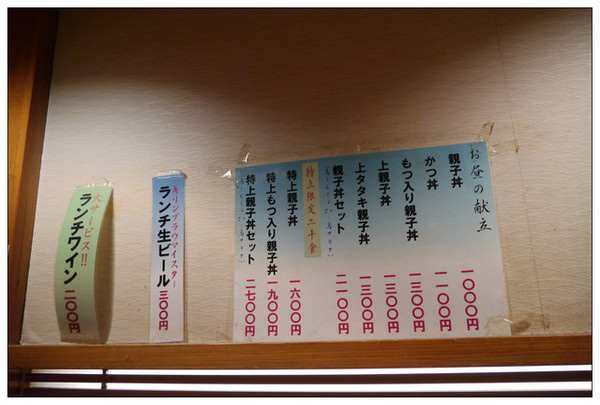 お昼の献立
親子丼 一〇〇〇円
かつ丼 一一〇〇円
もつ入り親子丼 一三〇〇円
上親子丼 一三〇〇円
上タタキ親子丼 一三〇〇円
親子丼セット 二一〇〇円
特上限定二十食
特上親子丼 一六〇〇円
特上もつ入り親子丼 一九〇〇円
特上親子丼セット 二七〇〇円
キリンブラウマイスター
ランチ生ビール 三〇〇円
大サービス!!
ランチワイン 二〇〇円